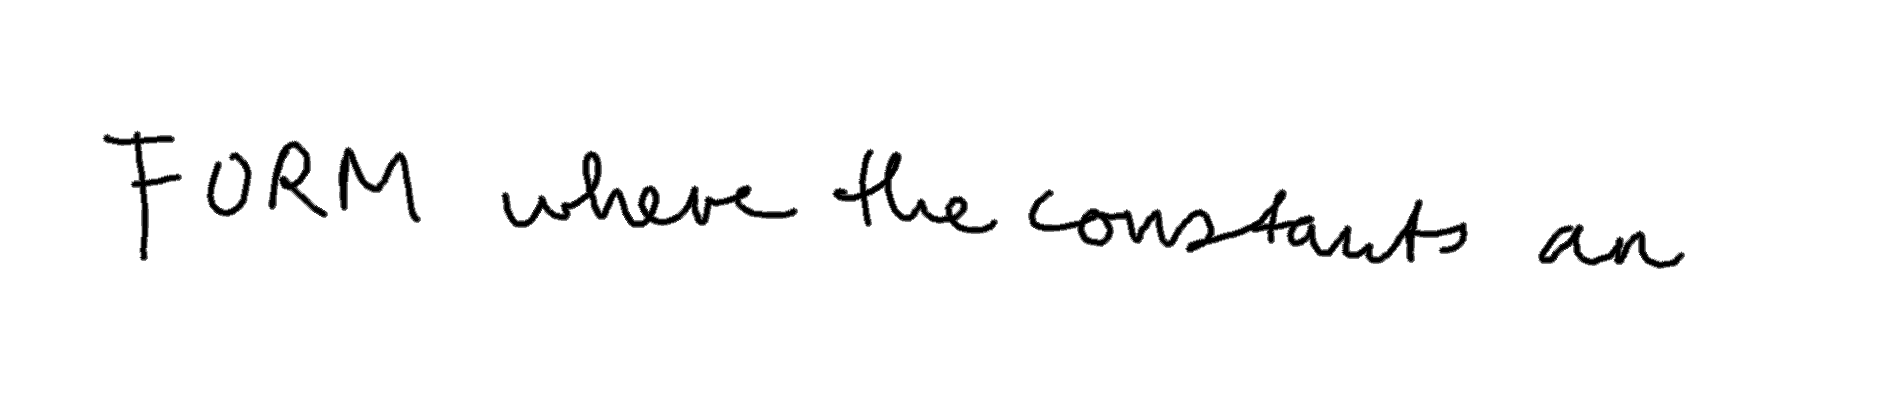 FORM where the constants an